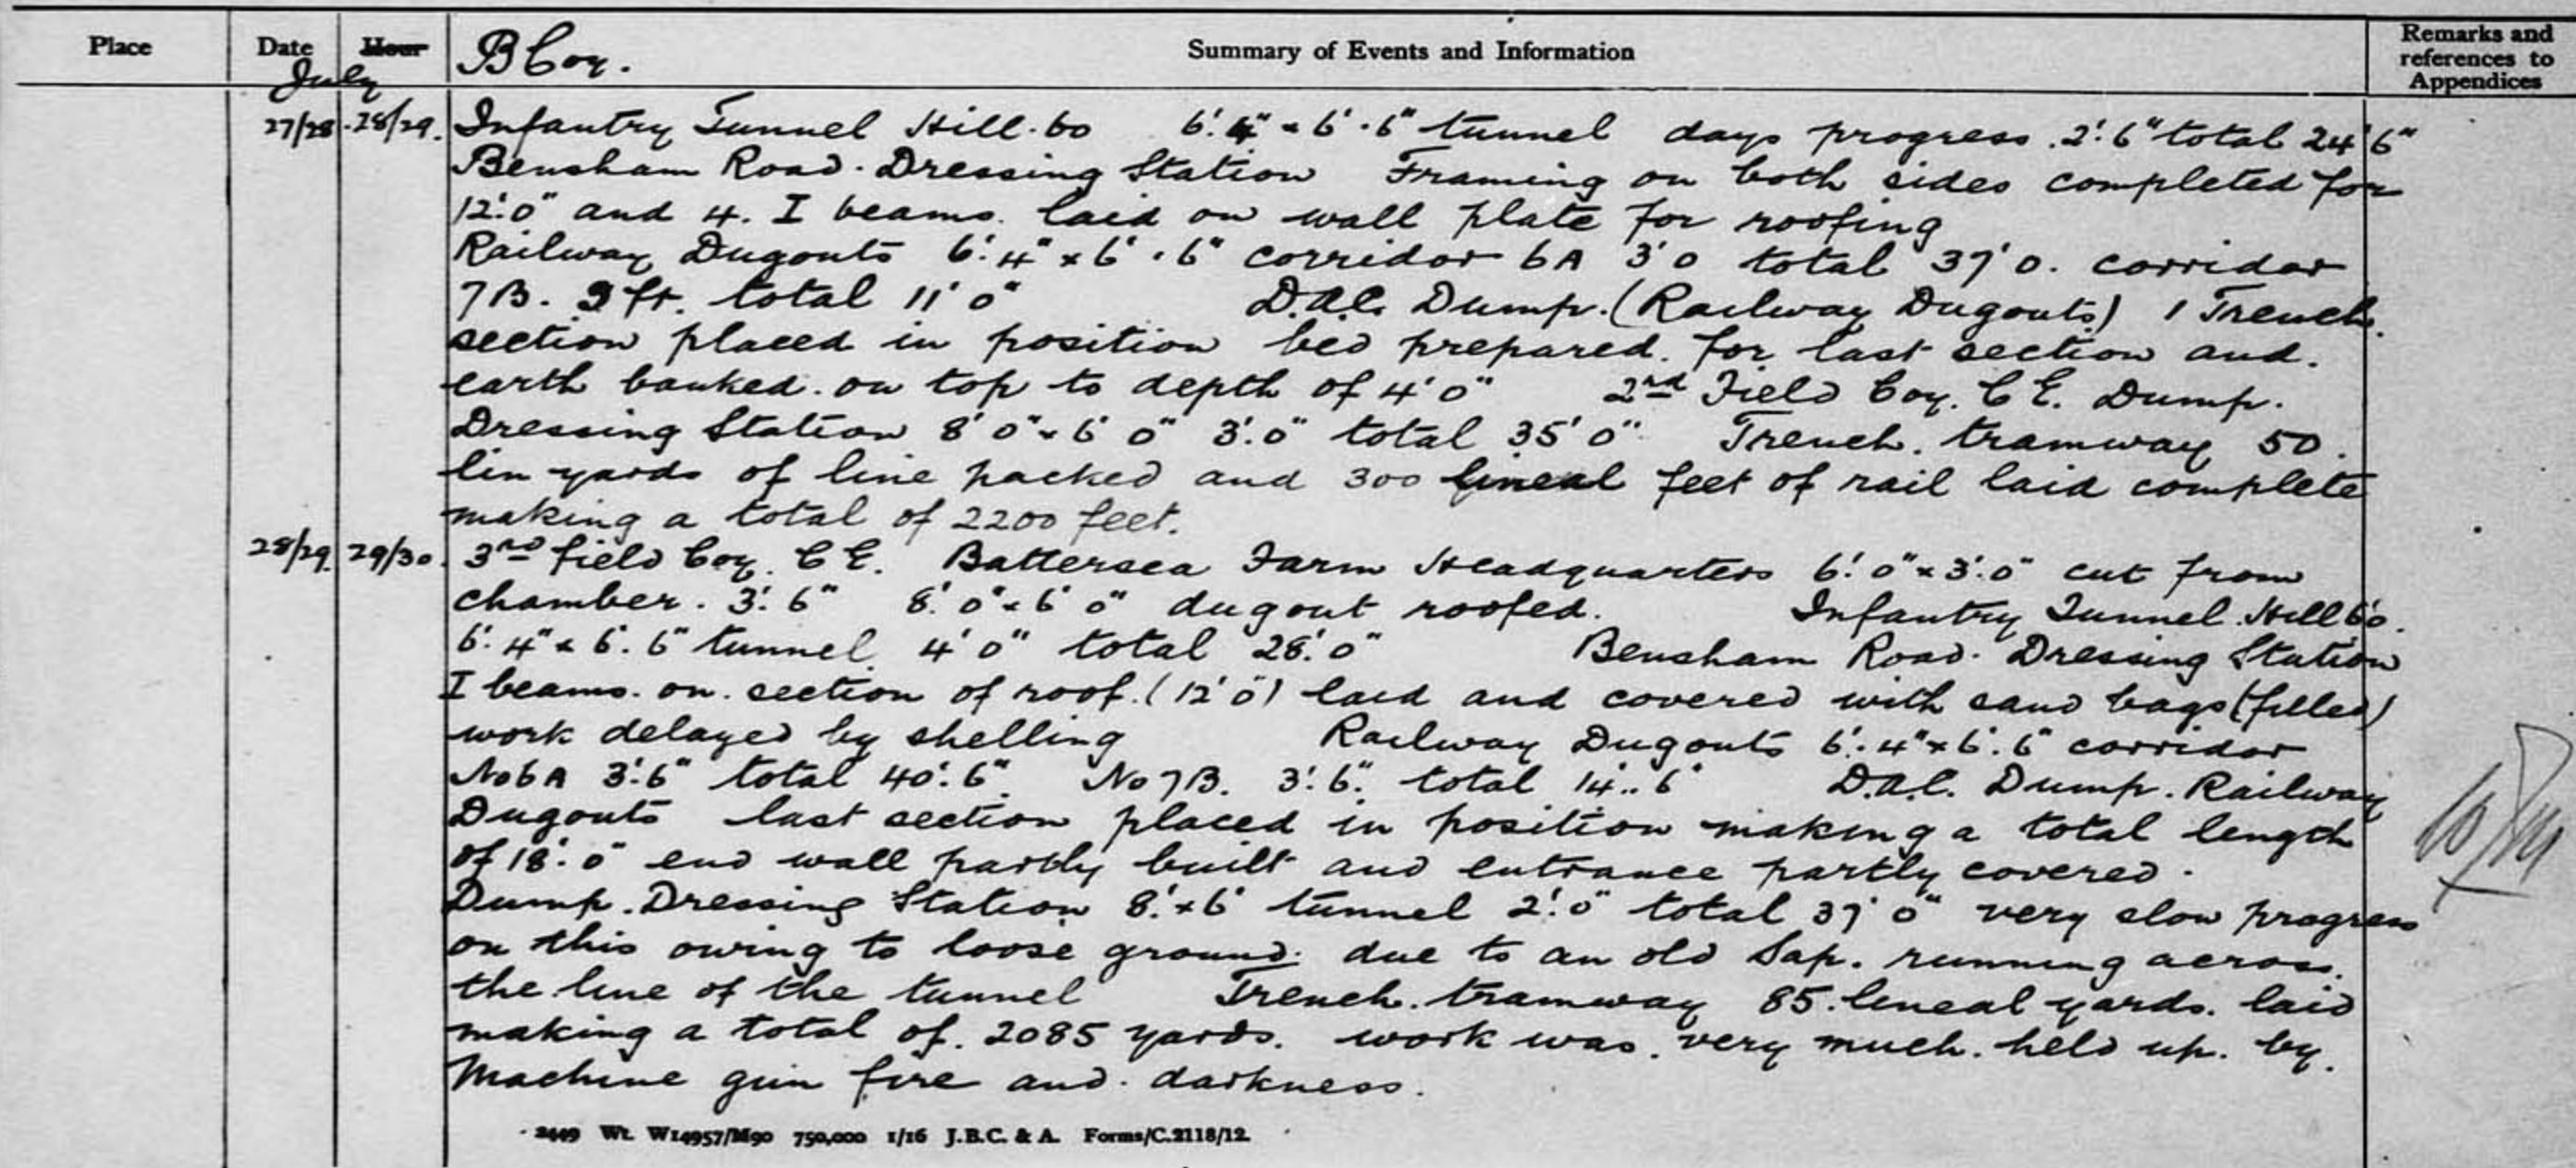 Place Date Hour B Coy. Summary of Events and Information Remarks and references to Appendices
July
27/28 28/29. Infantry Tunnel Hill. 60 6'.4" x 6'.6" tunnel days progress. 2'.6" total 24'6"
Bensham Road. Dressing Station Framing on both sides completed for
12'.0" and 4. I beams. laid on wall plate for roofing
Railway Dugouts 6'.4" x 6'.6" corridor 6A 3'0 total 37'0. corridor
7B. 3 ft. total 11'0" D.A.C. Dump. (Railway Dugouts) 1 Trench.
section placed in position bed prepared. for last section and.
earth banked. on top to depth of 4'0" 2nd Field Coy. C E. Dump.
Dressing Station 8'0" x 6'0" 3'.0" total 35'0". Trench. tramway 50.
lin yards of line packed and 300 lineal feet of rail laid complete
making a total of 2200 feet.
28/29. 29/30. 3rd field Coy. C E. Battersea Farm Headquarters 6'.0" x 3'.0" cut from
chamber. 3'.6" 8'.0" x 6'0" dugout roofed. Infantry Tunnel. Hill 60.
6'.4" x 6'.6" tunnel. 4'0" total 28'.0" Bensham Road. Dressing Station
I beams. on. section of roof. (12'0") laid and covered with sand bags (filled)
work delayed by shelling Railway Dugouts 6'.4" x 6'.6" corridor
No 6A 3'.6" total 40'.6". No 7B. 3'.6". total 14..6' D.A.C. Dump. Railway
Dugouts last section placed in position making a total length
of 18'.0" end wall partly built and entrance partly covered.
Dump. Dressing Station 8' x 6' tunnel 2'.0" total 37'0" very slow progress
on this owing to loose ground. due to an old Sap. running across.
the line of the tunnel Trench. tramway 85. lineal yards. laid
making a total of. 2085 yards. work was. very much. held up. by.
Machine gun fire and. darkness.
2449 Wt. W14957/M90 750,000 1/16 J.B.C. & A. Forms/C.2118/12.